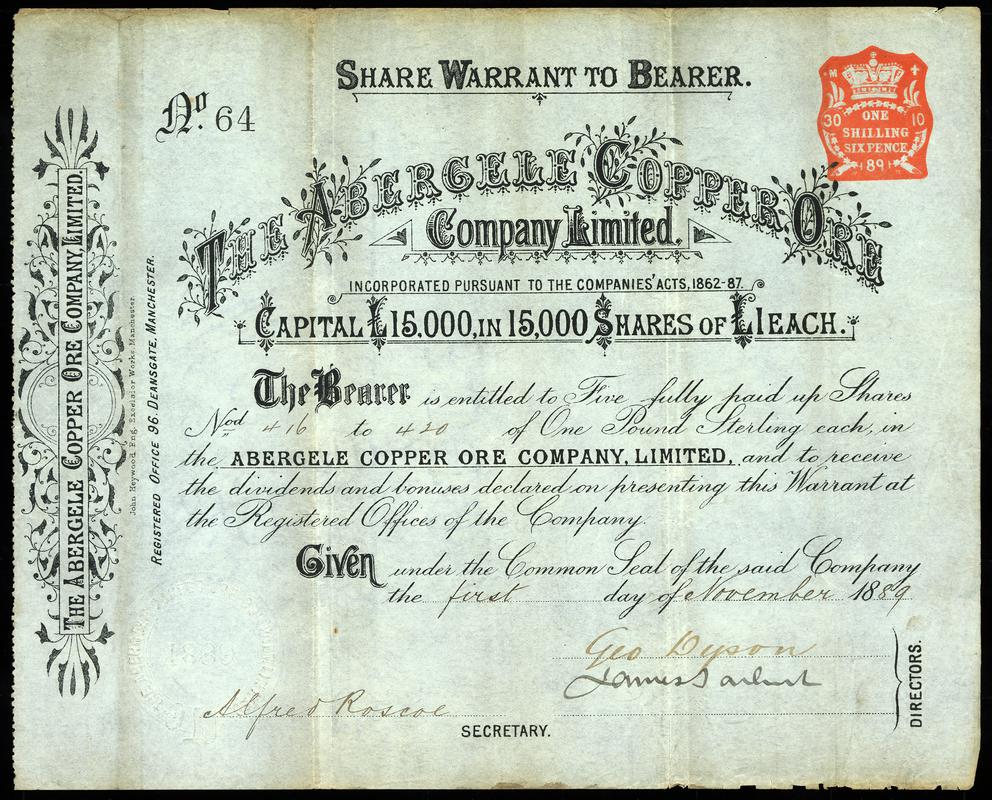 SHARE WARRANT TO BEARER.
No. 64
M
30 10
ONE
SHILLING
SIXPENCE
89
THE ABERGELE COPPER ORE
Company Limited.
INCORPORATED PURSUANT TO THE COMPANIES' ACTS, 1862-87.
CAPITAL £15,000, IN 15,000 SHARES OF £1 EACH.
The Bearer is entitled to Five fully paid up Shares
Nod 416 to 420 of One Pound Sterling each, in
the ABERGELE COPPER ORE COMPANY, LIMITED, and to receive
the dividends and bonuses declared on presenting this Warrant at
the Registered Offices of the Company.
Given under the Common Seal of the said Company
the first day of November 1889
Geo Dyson
James
DIRECTORS.
Alfred Roscoe
SECRETARY.
THE ABERGELE COPPER ORE COMPANY, LIMITED.
John Heywood Eng. Excelsior Works. Manchester.
REGISTERED OFFICE 96, DEANSGATE, MANCHESTER.